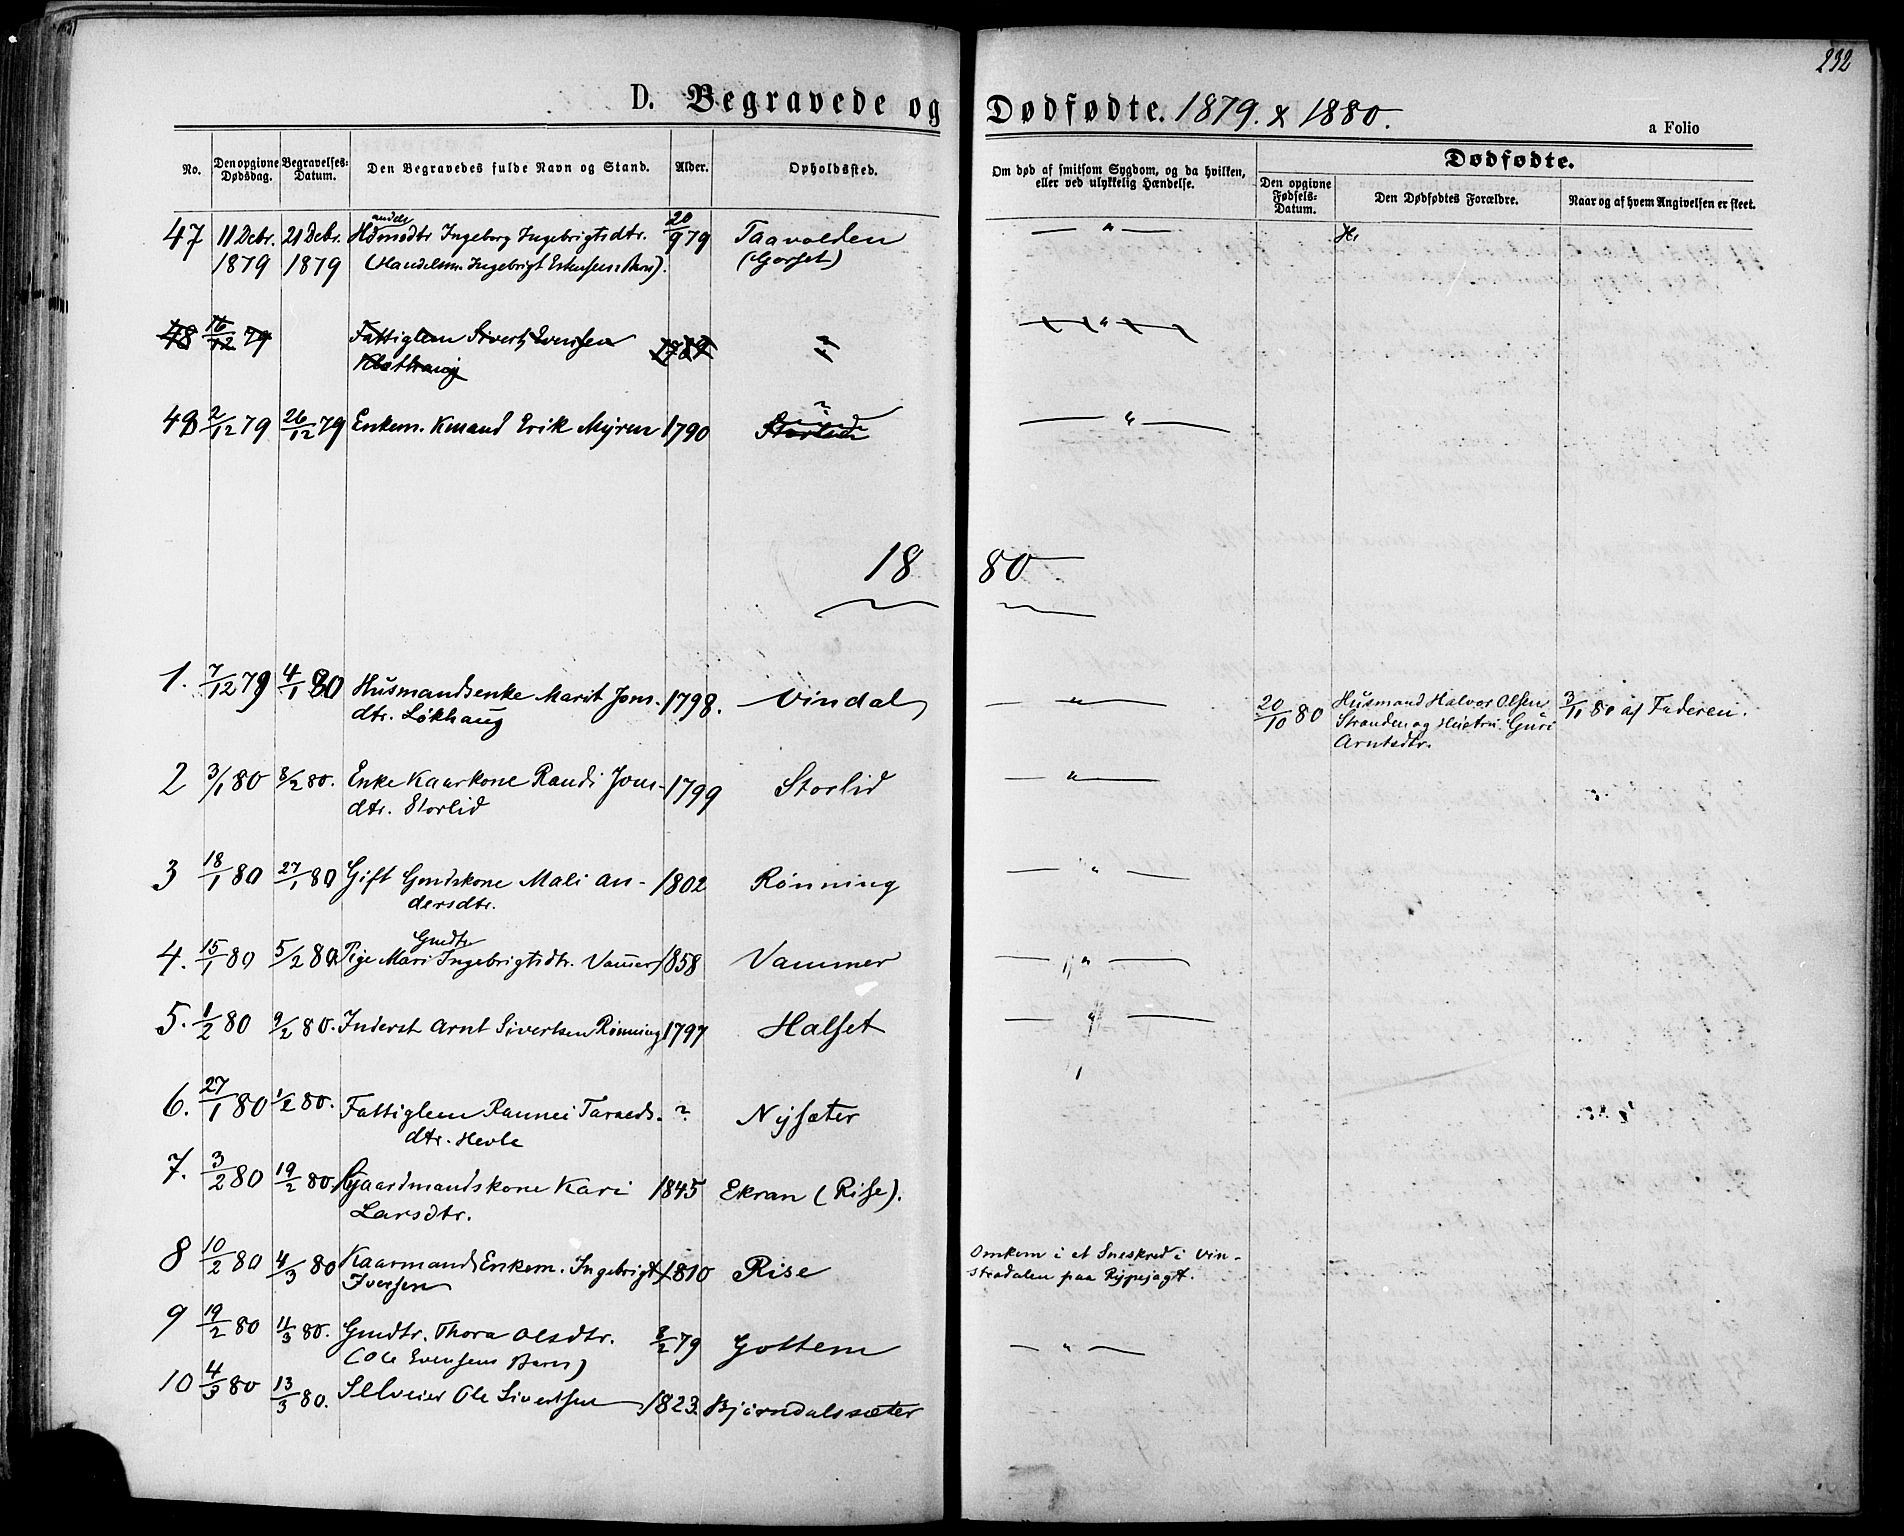 232
D. Begravede og Dødfødte. 1879. & 1880.
a Folio
No.
Den opgivne Dødsdag.
Begravelses-Datum.
Den Begravedes fulde Navn og Stand.
Alder.
Opholdssted.
Om død af smitsom Sygdom, og da hvilken,
eller ved ulykkelig Hændelse.
Dødfødte.
Den opgivne Fødsels-Datum.
Den Dødfødtes Forældre.
Naar og af hvem Angivelsen er skeet.
47 11 Debr. 21 Debr. Ingeborg Ingebrigtsdtr. 20/9 79 Taavolden — " —
1879 1879 (Handelsm. Ingebrigt Eskensens Barn). (Gorset)
48 16/12 79 Fattiglem Sivert Evensen 1789 " — " —
Klethaug
48 2/12 79 26/12 79 Enkem. Kmand Erik Myren 1790 ? Storlid — " —
18 80
1. 7/12 79 4/1 80 Husmandsenke Marit Jons- 1798. Vindal — " — 20/10 80 Husmand Halvor Olsen 3/11 80 af Faderen.
dtr. Løkhaug Stranden og Hustru Guri
Arntsdtr.
2 3/1 80 8/2 80. Enke Kaarkone Randi Jons- 1799 Storlid — " —
dtr. Storlid
3 18/1 80 27/1 80 Gift Gmdskone Mali An- 1802 Rønning — " —
dersdtr.
Gmdtr
4. 15/1 80 5/2 80. Pige Mari Ingebrigtsdtr. Vammer 1858 Vammer — " —
5. 1/2 80 9/2 80. Inderst Arnt Sivertsen Rønning 1797 Halset — " —
6. 27/1 80 1/2 80. Fattiglem Rannei Taraeds- ? Nysæter
dtr. Hevle
7. 3/2 80 19/2 80. Gaardmandskone Kari 1845 Ekran (Rise).
Larsdtr.
8 10/2 80 4/3 80 Kaarmand Enkem. Ingebrigt 1810 Rise Omkom i et Sneskred i Vin-
Iversen stradalen paa Rypejagt.
9 19/2 80 11/3 80. Gmdtr. Thora Olsdtr. 8/2 79 Gottem — " —
(Ole Evensens Barn)
10 4/3 80 13/3 80. Selveier Ole Sivertsen 1823. Bjørndalssæter